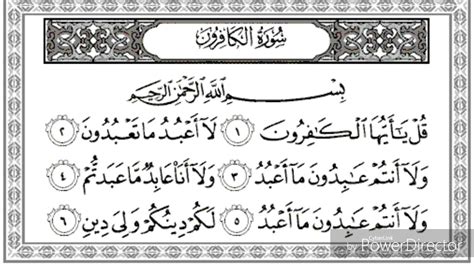 سُورَةُ الْكَافِرُونَ
بِسْمِ اللَّهِ الرَّحْمَٰنِ الرَّحِيمِ
قُلْ يَا أَيُّهَا الْكَافِرُونَ ١ لَا أَعْبُدُ مَا تَعْبُدُونَ ٢
وَلَا أَنتُمْ عَابِدُونَ مَا أَعْبُدُ ٣ وَلَا أَنَا عَابِدٌ مَّا عَبَدتُّمْ ٤
وَلَا أَنتُمْ عَابِدُونَ مَا أَعْبُدُ ٥ لَكُمْ دِينُكُمْ وَلِيَ دِينِ ٦
CyberLink
by PowerDirector